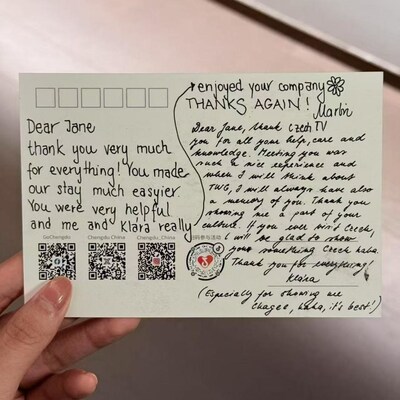 Dear Jane
thank you very much
for everything! You made
our stay much easier.
You were very helpful
and me and Klára really
enjoyed your company
THANKS AGAIN!
Martin
Czech TV
Dear Jane, thank
you for all your help, care and
knowledge. Meeting you was
such a nice experience and
when I will think about
TWG, I will always have also
a memory of you. Thank you
showing me a part of your
culture. If you ever visit Czech,
I will be glad to show
you something Czech haha.
Thank you for everything!
Klára
(Especially for showing me
Chagee, haha, it's best!)
GoChengdu
Chengdu, China
Chengdu_China